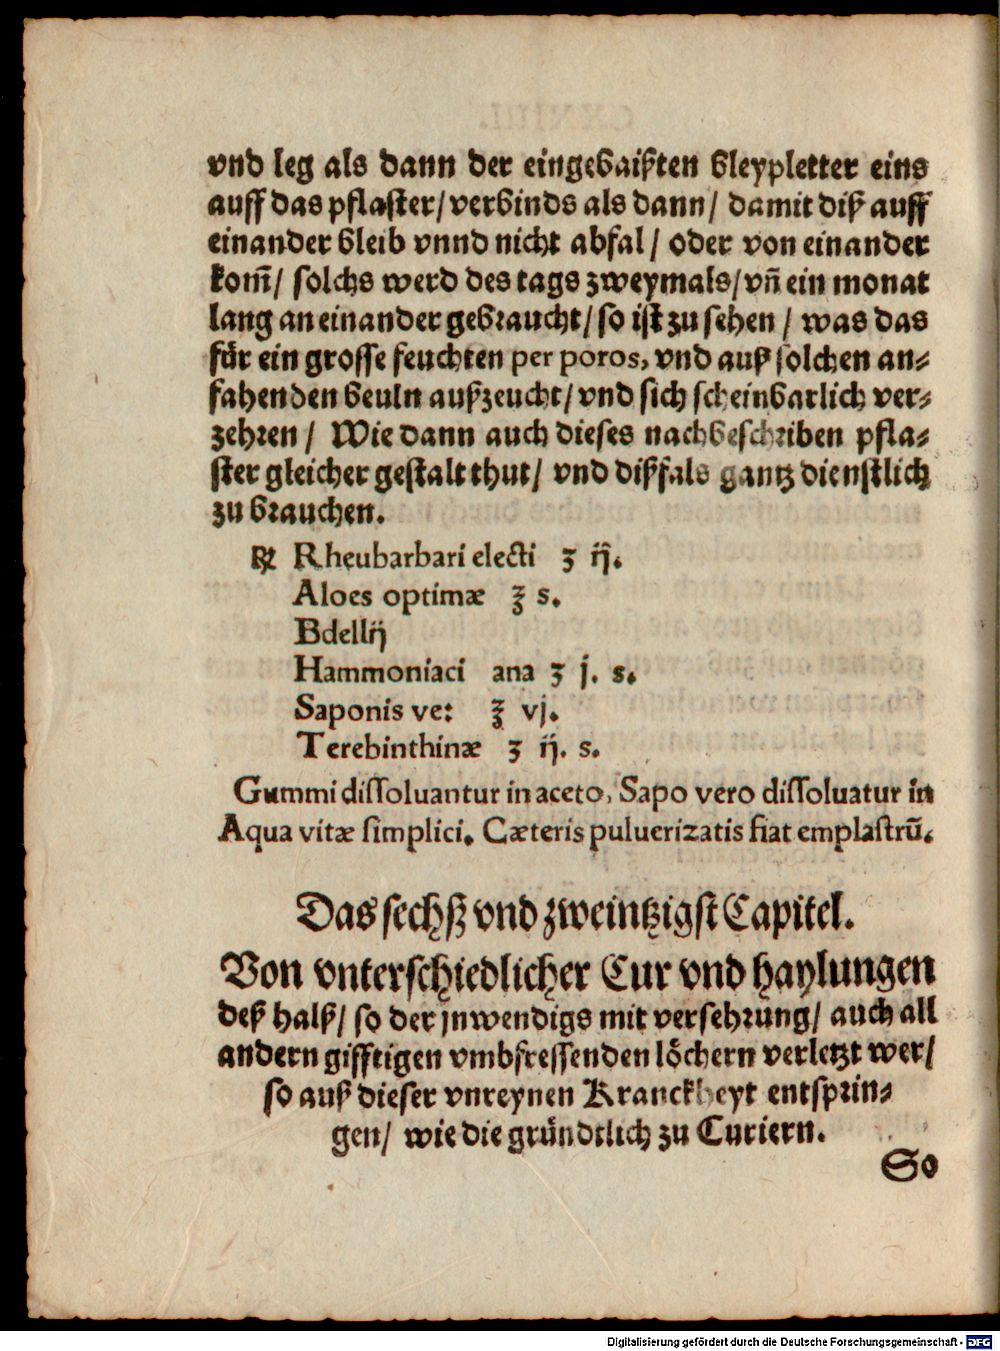 vnd leg als dann der eingebaißten bleypletter eins
auff das pflaster/ verbinds als dann/ damit diß auff
einander bleib vnnd nicht abfal/ oder von einander
kom̄/ solchs werd des tags zweymals/ vñ ein monat
lang an einander gebraucht/ so ist zu sehen/ was das
für ein grosse feuchten per poros, vnd auß solchen an-
fahenden beuln außzeucht/ vnd sich scheinbarlich ver-
zehren/ Wie dann auch dieses nachbeschriben pfla-
ster gleicher gestalt thut/ vnd dißfals gantz dienstlich
zu brauchen.
℞ Rheubarbari electi ʒ ij.
Aloes optimæ ℥ s.
Bdellij
Hammoniaci ana ʒ j. s.
Saponis ve: ℥ vj.
Terebinthinæ ʒ ij. s.
Gummi dissoluantur in aceto, Sapo vero dissoluatur in
Aqua vitæ simplici. Cæteris puluerizatis fiat emplastrū.
Das sechß vnd zweintzigst Capitel.
Von vnterschiedlicher Cur vnd haylungen
deß halß/ so der jnwendigs mit versehrung/ auch all
andern gifftigen vmbfressenden löchern verletzt wer/
so auß dieser vnreynen Kranckheyt entsprin-
gen/ wie die gründtlich zu Curiern.
So
Digitalisierung gefördert durch die Deutsche Forschungsgemeinschaft - DFG